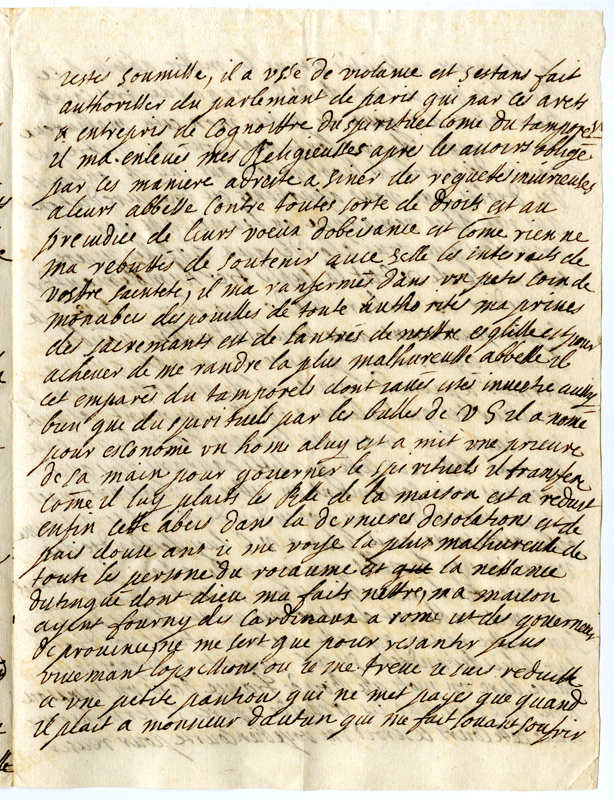 restés soumisse, il a ussé de violance est sestans fait
authorisser du parlemant de paris qui par ces arets
a entrepris de Cognoistre du spirituel come du tamporel
il ma enlevés mes Religieusses apres les avoirs obligé
par ces maniere adroite a siner des requetes iniurieuses
a leurs abbesse contre toutes sorte de droits est au
preiudice de leurs voeux d'obeisance est come rien ne
ma rebuttés de soutenir avec selle les interaits de
vostre sainteté, il ma ranfermés dans un petis coin de
mon abeis despouilles de toute authorités ma prives
des sacremants est de lantrés de nostre esglisse est pour
achever de me randre la plus malhureusse abbesse il
cet emparés du tamporels dont javés estés investie aussy
bien que du spirituels par les bulles de V S il a nomé
pour esconome un home a luy est a mit une prieure
de sa main pour governer le spirituels il transfere
come il luy plaits les Rlle de la maison est a reduit
enfin cette abeis dans la dernieres desolations est de
puis douse ans ie me voyse la plus malhureuse de
toute les persone du roiaume est que la nessance
distingué dont dieu ma faits nestre, ma maison
ayent fourny des Cardinaux a rome et des governeurs
de province, ne me sert que pour resantir plus
vivemant lopressions ou ie me treuve ie suis reduitte
a une petite pantions qui ne met payes que quand
il plait a monsieur dautun qui me fait souant soufrir